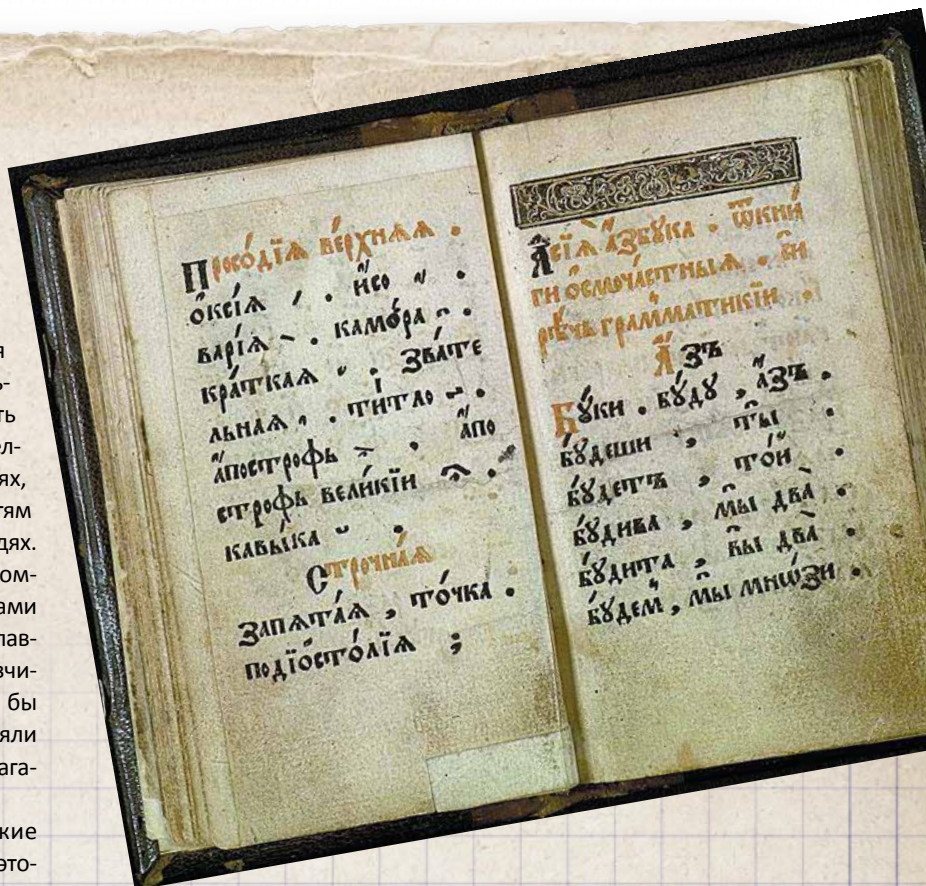 я
ь-
ть
ел-
ях,
тям
дях.
ом-
ами
лав-
вчи-
бы
яли
ага-
кие
это-
Просо́дїѧ ве́рхнѧѧ .
о҆ксі́ѧ ́ . и҆́со ̋ .
варі́ѧ ̀ . камо́ра ̑ .
кра́ткаѧ ̆ . зва́те
льнаѧ ҆ . ти́тло ҃ .
а҆по́строфь . а҆по
строфь вели́кїи .
кавы́ка .
Строчна́ѧ
запѧта́ѧ , то́чка .
подїосто́лїѧ ;
А҆ сїѧ̀ а҆́збꙋка . ѿ кни́
ги ѻ҆смоча́стныѧ . си́
рѣчь грамма́тикїи .
А҆́зъ
Бꙋ́ки . бꙋ́дꙋ , а҆́зъ .
бꙋ́деши , ты̀ .
бꙋ́детъ , то́и .
бꙋ́дива , мы̀ два̀ .
бꙋ́дита , вы̀ два̀ .
бꙋ́демъ , мы̀ мно́зи .